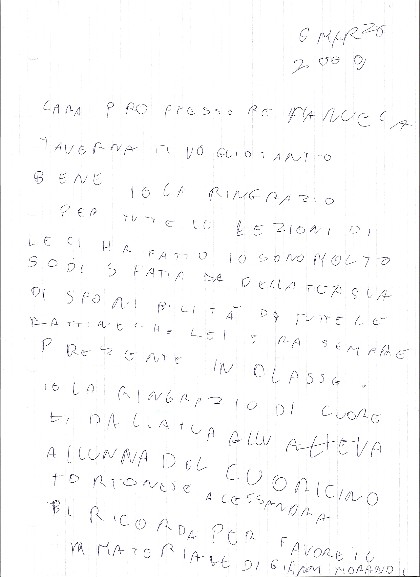 6 MARZO
2009
CARA PROFFESSORE MANUELA
TAVERNA TI VOGLIO TANTO
BENE IO LA RINGRAZIO
PER TUTE LE LEZIONI DI
LE CI HA FATTO IO SONO MOLTO
SODISFATA DELLA TUA
DI SPONIBILITÀ DA TUTE LE
MATTINE LEI SARA SEMPRE
PREZENTE IN CLASSE.
IO LA RINGRAZIO DI CUORE
DALLA TUA ALLIEVA
ALUNNIA DEL CUORICINO
TORTONESE ALESSANDRA
TI RICORDA PER FAVORE IL
MATERIALE DI GIANNI MORANDI